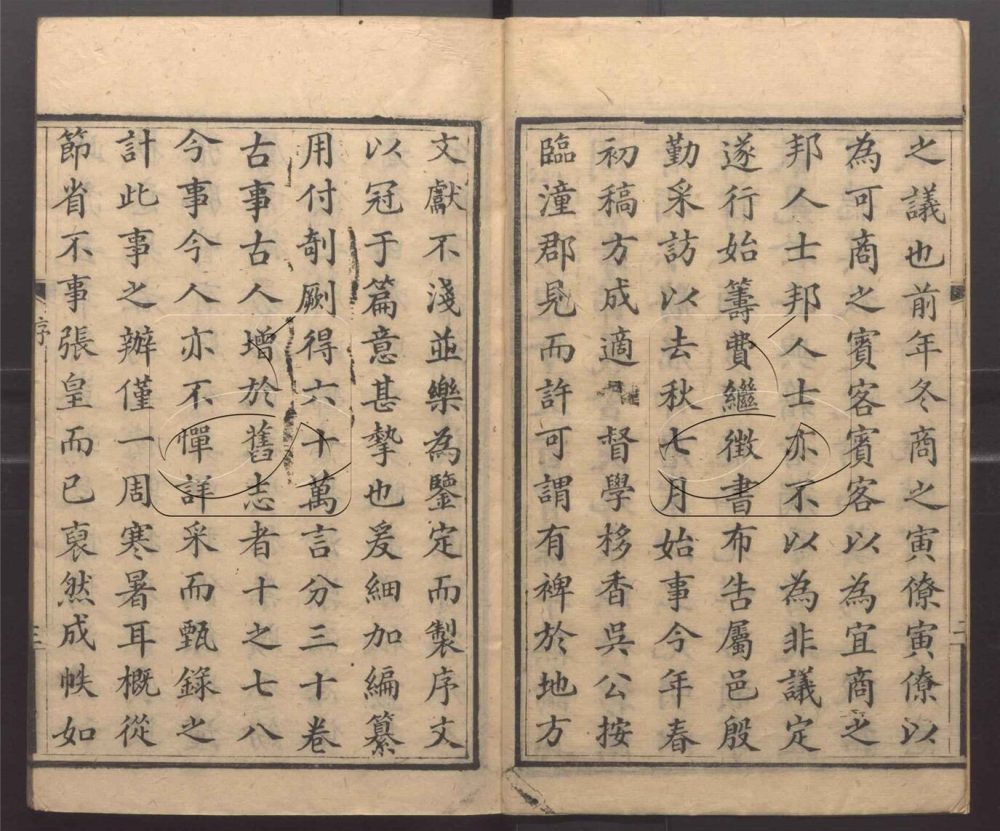 之議也前年冬商之寅僚寅僚以
為可商之賓客賓客以為宜商之
邦人士邦人士亦不以為非議定
遂行始籌費繼徴書布告屬邑殷
勤采訪以去秋七月始事今年春
初稿方成適督學栘香吳公按
臨潼郡見而許可謂有裨於地方
二
文獻不淺並樂為鑒定而製序文
以冠于篇意甚摯也爰細加編纂
用付剞劂得六十萬言分三十卷
古事古人增於舊志者十之七八
今事今人亦不憚詳采而甄錄之
計此事之辦僅一周寒暑耳概從
節省不事張皇而已裒然成帙如
序
三